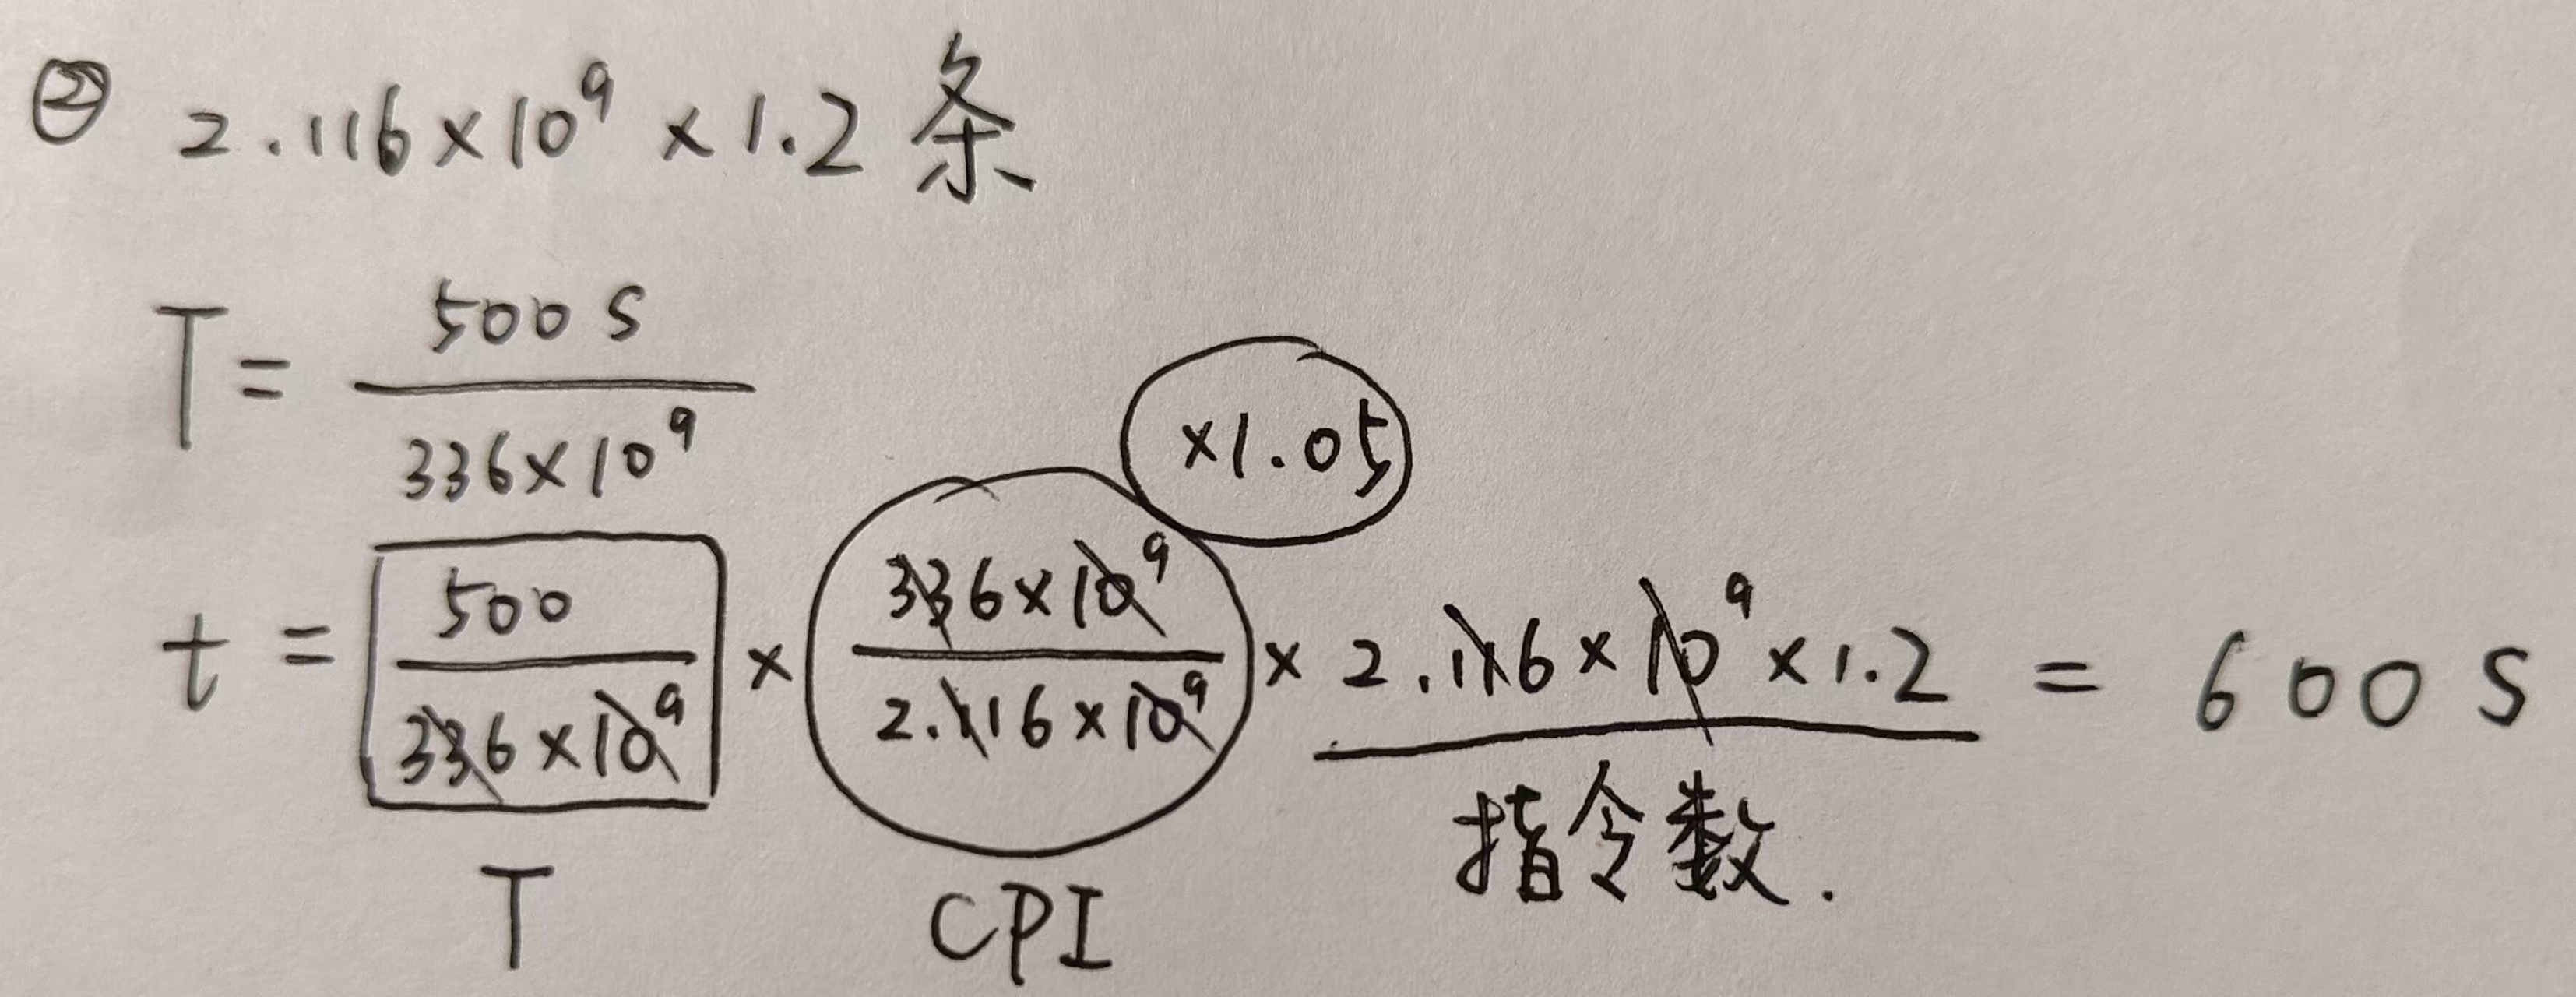 ② 2.116×10⁹ × 1.2 条
T = 500 s / 336×10⁹
×1.05
t = 500 / 336×10⁹ × 336×10⁹ / 2.116×10⁹ × 2.116×10⁹ ×1.2 = 600 s
T CPI 指令数.